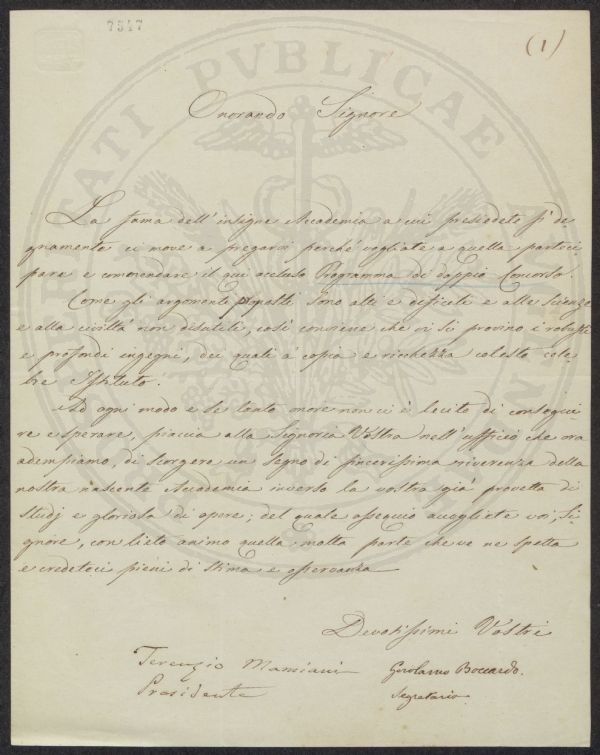 7547
(1)
Onorando Signore
La fama dell'insigne Accademia a cui presiedete sì de
gnamente ci move a pregarvi perchè vogliate a quella parteci
pare e commendare il qui accluso Programma di doppio Concorso.
Come gli argomenti proposti sono alti e difficili e alle scienze
e alla civiltà non disutili, così conviene che vi si provino i robusti
e profondi ingegni, dei quali à copia e ricchezza cotesto cele
bre Istituto.
Ad ogni modo e se tanto onore non ci è lecito di consegui
re e sperare, piaccia alla Signoria Vostra nell'ufficio che ora
adempiamo, di scorgere un segno di sincerissima riverenza della
nostra nascente Accademia inverso la vostra già provetta di
studj e gloriosa di opere; del quale ossequio accogliete voi, Si
gnore, con lieto animo quella molta parte che ve ne spetta
e credeteci pieni di stima e osservanza
Devotissimi Vostri
Terenzio Mamiani
Presidente
Gerolamo Boccardo.
Segretario